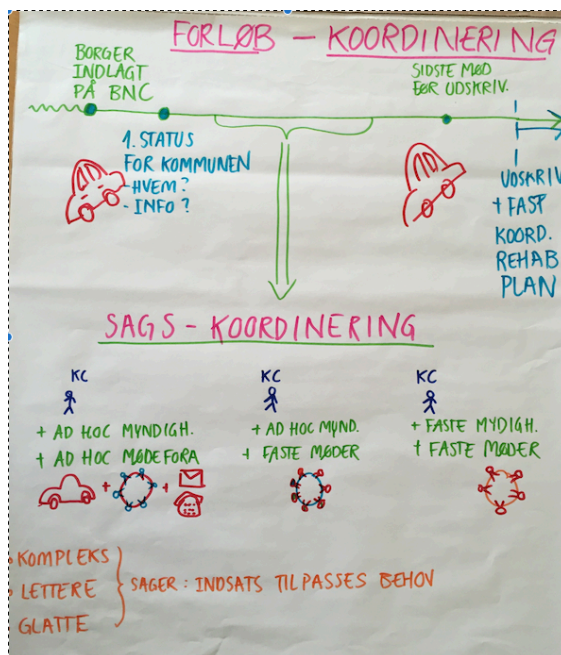 FORLØB - KOORDINERING
BORGER
INDLAGT
PÅ BNC
SIDSTE MØD
FØR UDSKRIV.
1. STATUS
FOR KOMMUNEN
- HVEM?
- INFO?
UDSKRIV
+ FAST
KOORD.
REHAB
PLAN
SAGS - KOORDINERING
KC
+ AD HOC MYNDIGH.
+ AD HOC MØDEFORA
KC
+ AD HOC MYND.
+ FASTE MØDER
KC
+ FASTE MYDIGH.
+ FASTE MØDER
KOMPLEKS
LETTERE
GLATTE
SAGER: INDSATS TILPASSES BEHOV